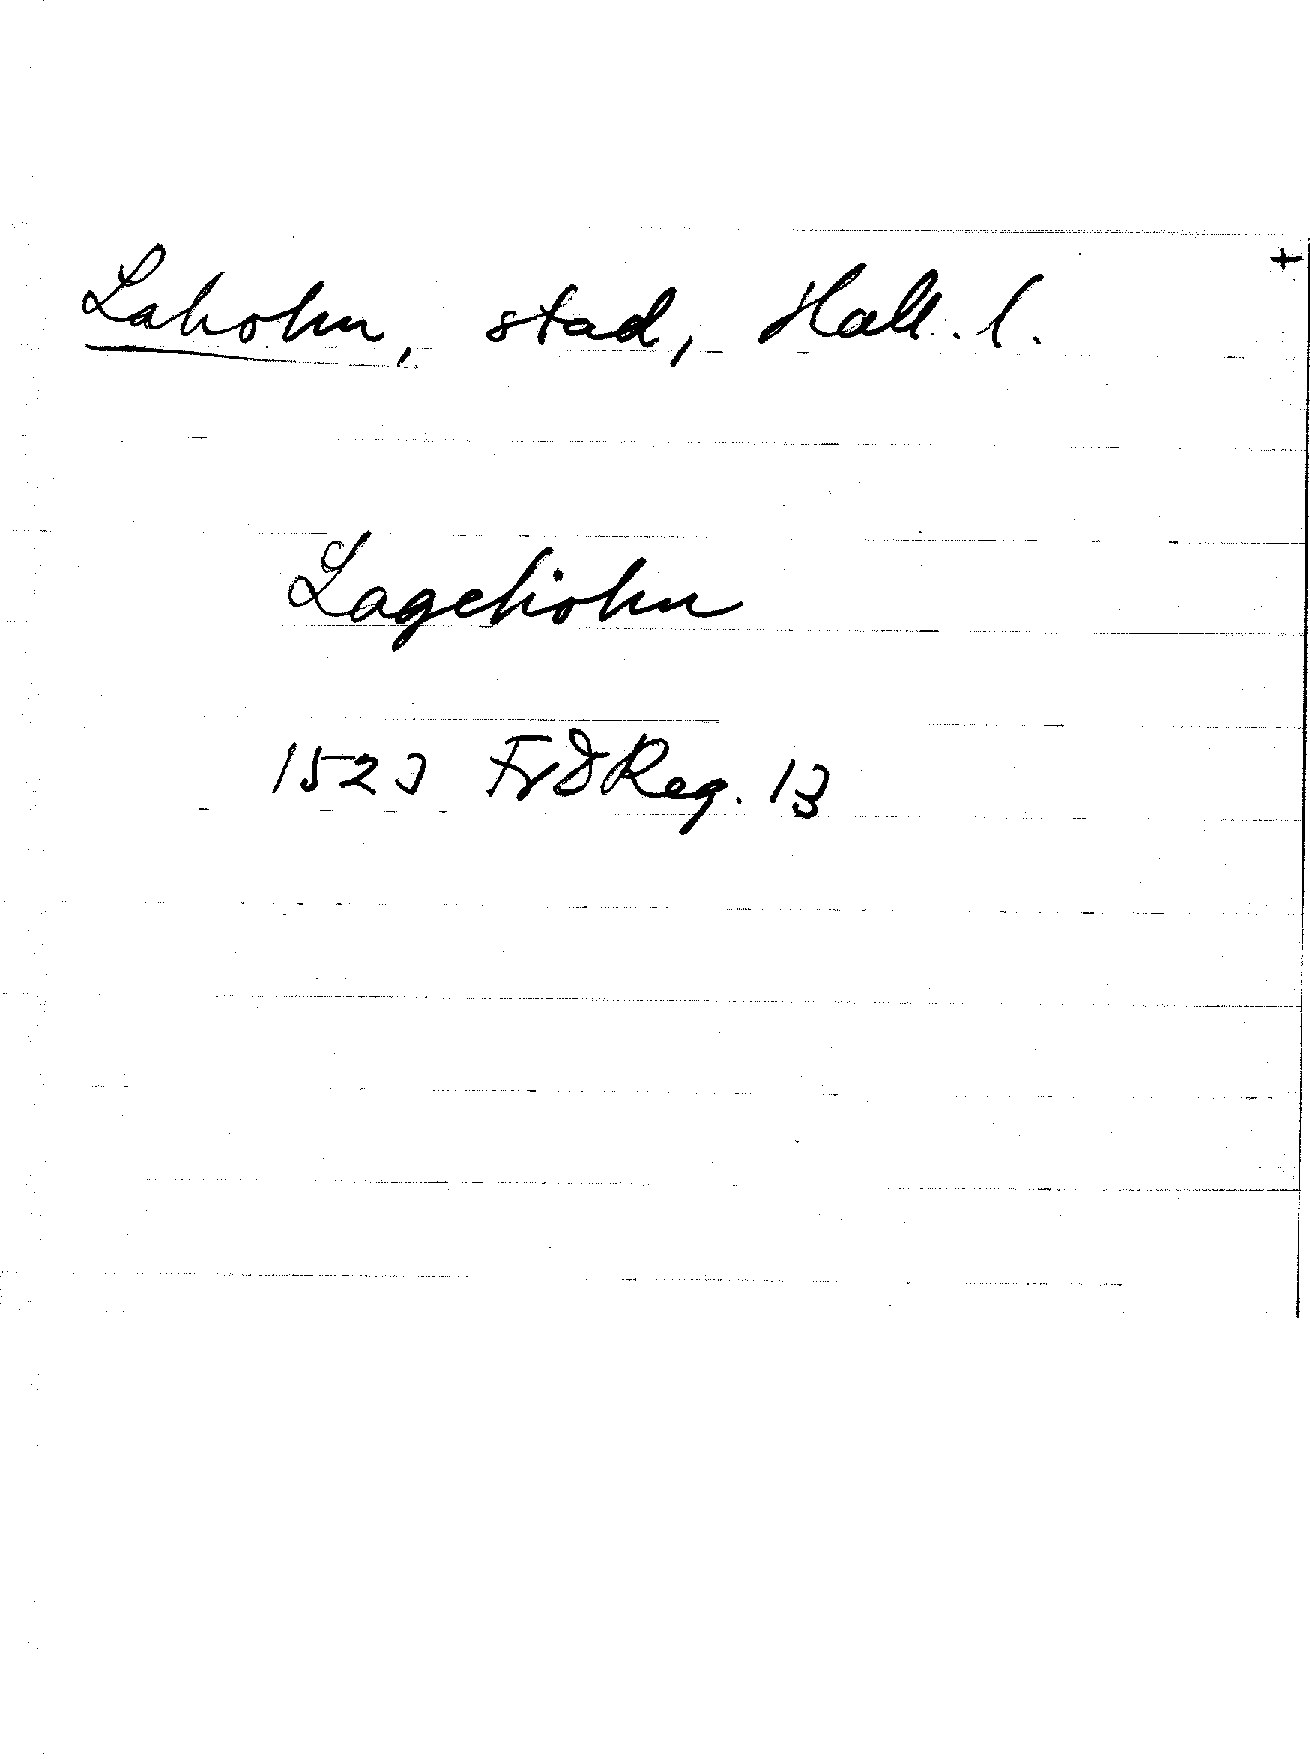 Laholm, stad, Hall. l.
Lageholm
1523 FrdReg. 13